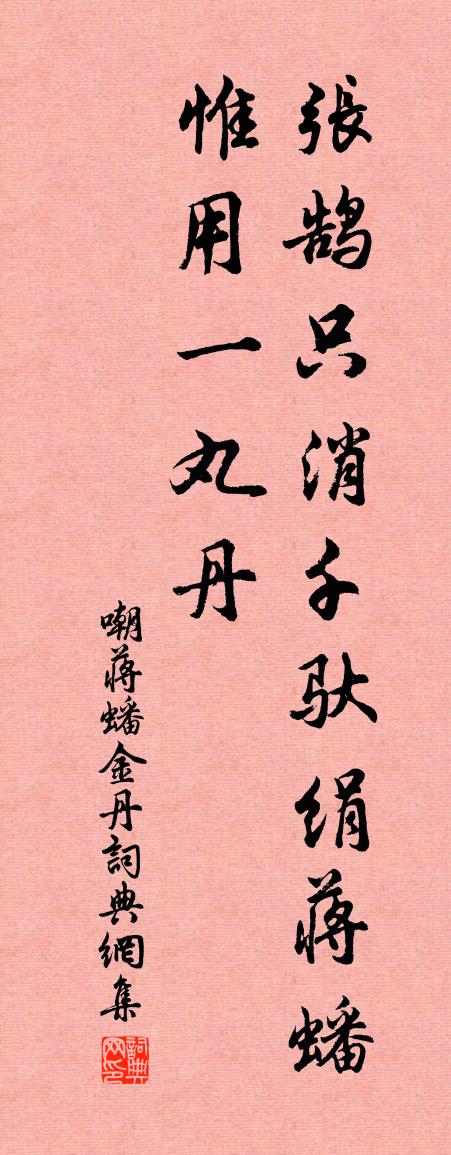 張鹄只消千馱絹蔣蟠
惟用一丸丹
嘲蔣蟠金丹詞典網集
詞典网印